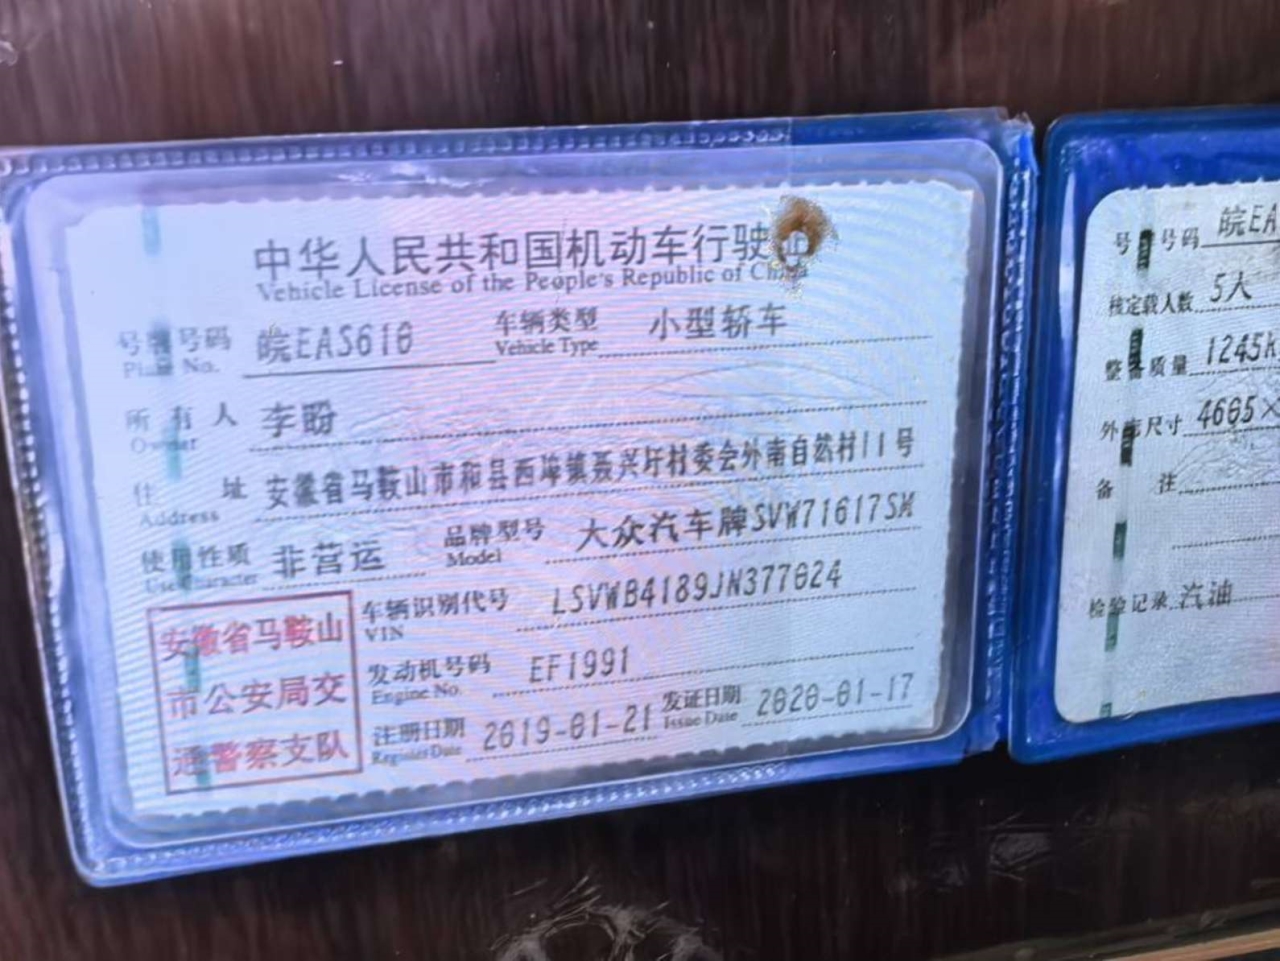 中华人民共和国机动车行驶证
Vehicle License of the People's Republic of China
号牌号码 皖EAS610 车辆类型 小型轿车
Plate No. Vehicle Type
所有人 李盼
Owner
住址 安徽省马鞍山市和县西埠镇聂兴圩村委会外南自然村11号
Address
使用性质 非营运 品牌型号 大众汽车牌SVW71617SM
Use Character Model
车辆识别代号 LSVWB4189JN377024
VIN
发动机号码 EF1991
Engine No.
注册日期 2019-01-21 发证日期 2020-01-17
Register Date Issue Date
安徽省马鞍山
市公安局交
通警察支队
号牌号码 皖EA
核定载人数 5人
整备质量 1245k
外廓尺寸 4605×
备注
检验记录 汽油